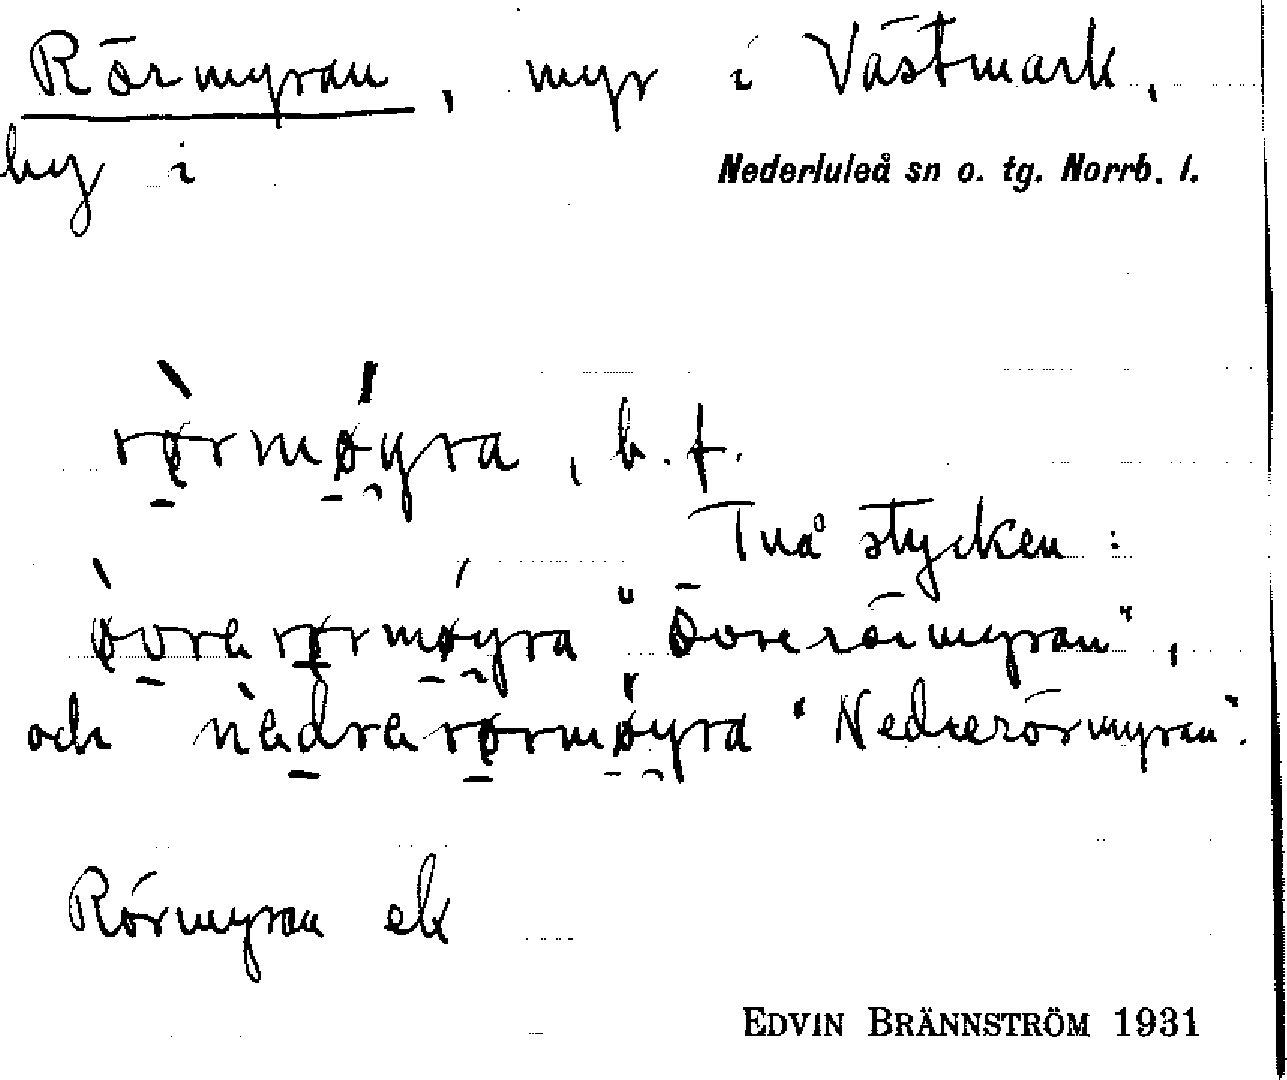 Rörmyran, myr i Västmark,
by i Nederluleå sn o. tg. Norrb. l.
rø̀rmǿyra, b. f.
Två stycken:
øvre rørmøyra "Övre rörmyran",
och nedre rørmøyra "Nedre rörmyran".
Rörmyran ek
EDVIN BRÄNNSTRÖM 1931